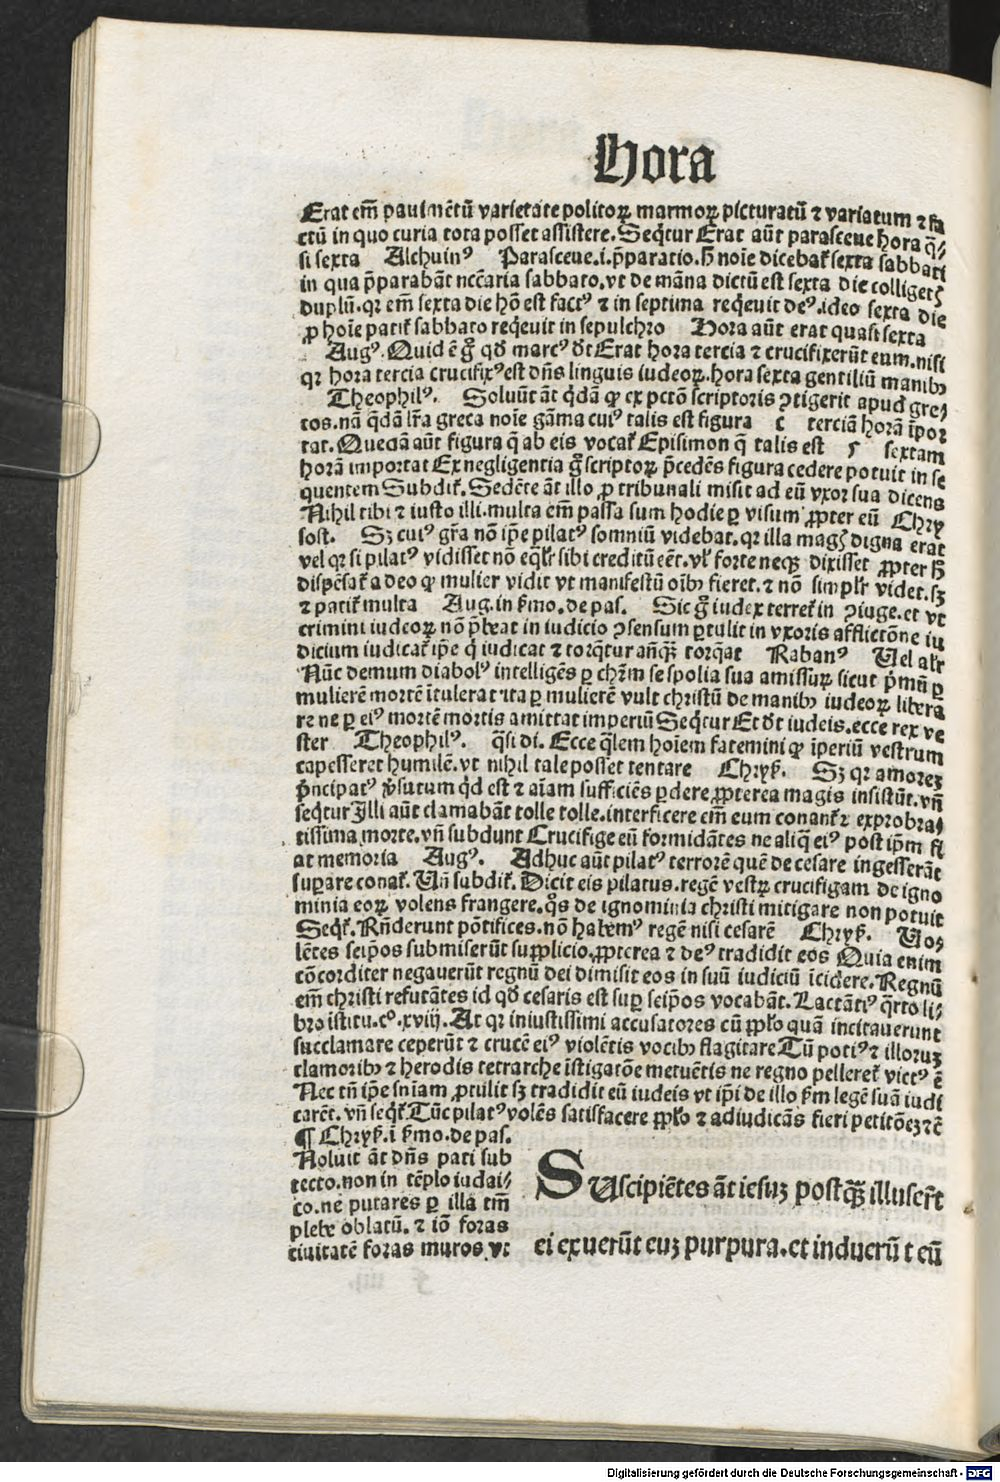 Hora
Erat em̄ pauimētū varietate politoꝝ marmoꝝ picturatū ⁊ variatum ⁊ fa
ctū in quo curia tota posset assistere. Seq̄tur Erat aūt parasceue hora q̄⸗
si sexta Alchuinꝰ Parasceue .i. p̄paratio. hͦ noīe dicebat᷑ sexta sabbati
in qua p̄parabāt nccāria sabbato, vt de māna dictū est sexta die colliget᷑
duplū. qꝛ em̄ sexta die hō est factꝰ ⁊ in septima req̄euit deꝰ. ideo sexta die
ꝓ hoīe patit᷑ sabbato req̄euit in sepulchro Hora aūt erat quasi sexta
Augꝰ. Quid ē gͦ qd̄ marcꝰ dt Erat hora tercia ⁊ crucifixerūt eum. nisi
qꝛ hora tercia crucifixꝰ est dn̄s linguis iudeoꝝ. hora sexta gentiliū manibꝫ
Theophilꝰ. Soluūt āt q̄dā ꝙ ex pctō scriptoris ꝯtigerit apud gre⸗
cos. nā q̄dā lr̄a greca noīe gāma cuiꝰ talis est figura c terciā horā īpor
tat. Quedā aūt figura q̄ ab eis vocat᷑ Episimon q̄ talis est ς sextam
horā importat Ex negligentia gͦ scriptoꝝ p̄cedēs figura cedere potuit in se
quentem Subdit᷑. Sedēte āt illo ꝓ tribunali misit ad eū vxor sua dicens
Nihil tibi ⁊ iusto illi. multa em̄ passa sum hodie ꝑ visum ꝓpter eū Chry
sost. Sꝫ cuiꝰ gr̄a nō ip̄e pilatꝰ somniū videbat. qꝛ illa magꝭ digna erat
vel qꝛ si pilatꝰ vidisset nō eq̄lr̄ sibi creditū eēt. vl̓ forte neqꝫ dixisset ꝓpter hͦ
dispēsat᷑ a deo ꝙ mulier vidit vt manifestū oībꝫ fieret. ⁊ nō simplr̄ videt. sꝫ
⁊ patit᷑ multa Aug. in ẜmo. de pas. Sic gͦ iudex terret᷑ in ꝯiuge. et vt
crimini iudeoꝝ nō p̄beat in iudicio ꝯsensum ꝑtulit in vxoris afflictōne iu
dicium iudicat᷑ ip̄e q̇ iudicat ⁊ torq̄tur an̄qꝫ torq̄at Rabanꝰ Uel alr̄
Nūc demum diabolꝰ intelligēs ꝑ chr̄m se spolia sua amissuꝝ sicut p̄mū ꝑ
mulierē mortē ītulerat ita ꝑ mulierē vult christū de manibꝫ iudeoꝝ libera
re ne ꝑ eiꝰ mortē mortis amittat imperiū Seq̄tur Et dt iudeis. ecce rex ve
ster Theophilꝰ. q̄si di. Ecce q̄lem hoīem fatemini ꝙ īperiū vestrum
capesseret humilē. vt nihil tale posset tentare Chryẜ. Sꝫ qꝛ amorez
p̄ncipatꝰ p̄sutum qd̄ est ⁊ aīam sufficiēs ꝑdere ꝓpterea magis insistūt. vn̄
seq̄tur Illi aūt clamabāt tolle tolle. interficere em̄ eum conant᷑ ⁊ exprobra⸗
tissima morte. vn̄ subdunt Crucifige eū formidātes ne aliq̄ eiꝰ post ip̄m fi
at memoria Augꝰ. Adhuc aūt pilatꝰ terrorē quē de cesare ingesserāt
suꝑare conat᷑. Un̄ subdit᷑. Dicit eis pilatus. regē vestꝝ crucifigam de igno
minia eoꝝ volens frangere. q̊s de ignominia christi mitigare non potuit
Seqt᷑. Rn̄derunt pōtifices. nō habemꝰ regē nisi cesarē Chryẜ. Uo⸗
lētes seip̄os submiserūt suꝓplicio. ꝓpterea ⁊ deꝰ tradidit eos Quia enim
cōcorditer negauerūt regnū dei dimisit eos in suū iudiciū īcidere. Regnū
em̄ christi refutātes id qd̄ cesaris est suꝑ seip̄os vocabāt. Lactātiꝰ q̄rto li⸗
bro īstitu. cͦ. xviij. At qꝛ iniustissimi accusatores cū pp̄lo quā incitauerunt
succlamare ceperūt ⁊ crucē eiꝰ violētis vocibꝫ flagitare Tū potiꝰ ⁊ illoruꝫ
clamoribꝫ ⁊ herodis tetrarche īstigatōe metuētis ne regno pelleret᷑ victꝰ ē
Nec tn̄ ip̄e sniam ꝓtulit sꝫ tradidit eū iudeis vt ip̄i de illo ẜm legē suā iudi
carēt. vn̄ seqt᷑. Tūc pilatꝰ volēs satisfacere pp̄lo ⁊ adiudicās fieri petitōeꝫ ⁊c̄
¶ Chryẜ. ī ẜmo. de pas.
Noluit āt dn̄s pati sub
tecto. non in tēplo iudai⸗
co. ne putares ꝑ illa tm̄
plebe oblatū. ⁊ iō foras
ciuitatē foras muros. vt
Suscipiētes āt iesuꝫ postqꝫ illuserūt
ei exuerūt euꝫ purpura. et induerūt eū